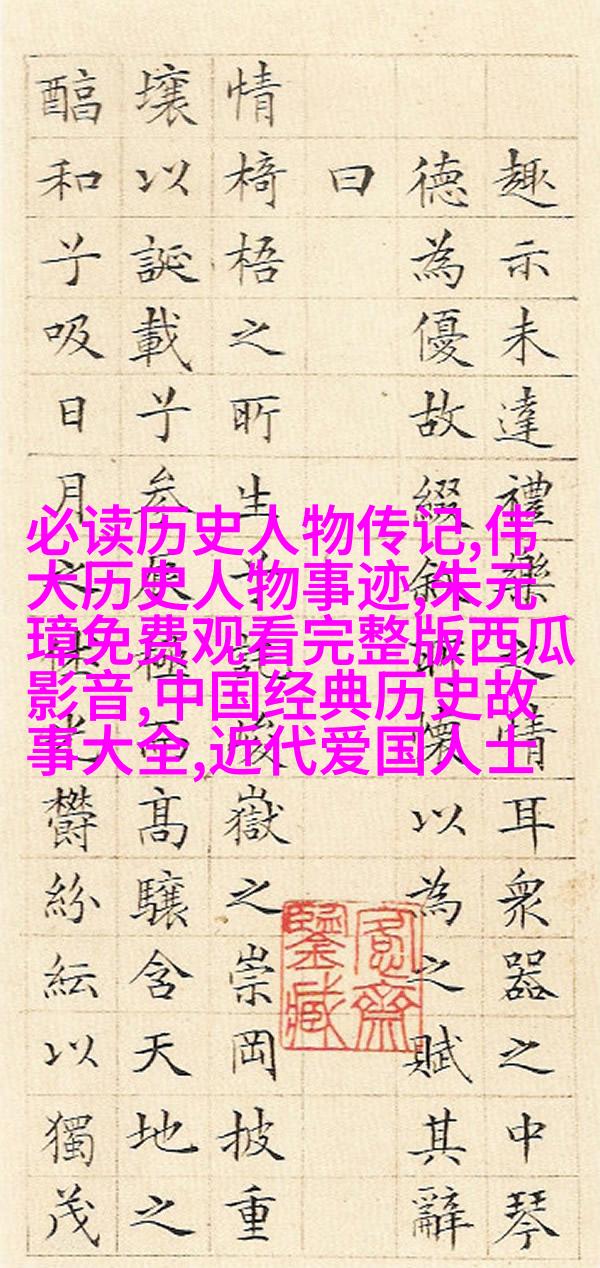 趣示未達禮樂之情耳衆器之中琴
德為優故綴敘所懷以為之賦其辭
曰
情椅梧之所生兮託峻嶽之崇岡披重
壤以誕載兮叅辰極而高驤含天地之
醕和兮吸日月之休光鬱紛紜以獨茂
必读历史人物传记,伟
大历史人物事迹,朱元
璋免费观看完整版西瓜
影音,中国经典历史故
事大全,近代爱国人士
愙齋
鑒藏